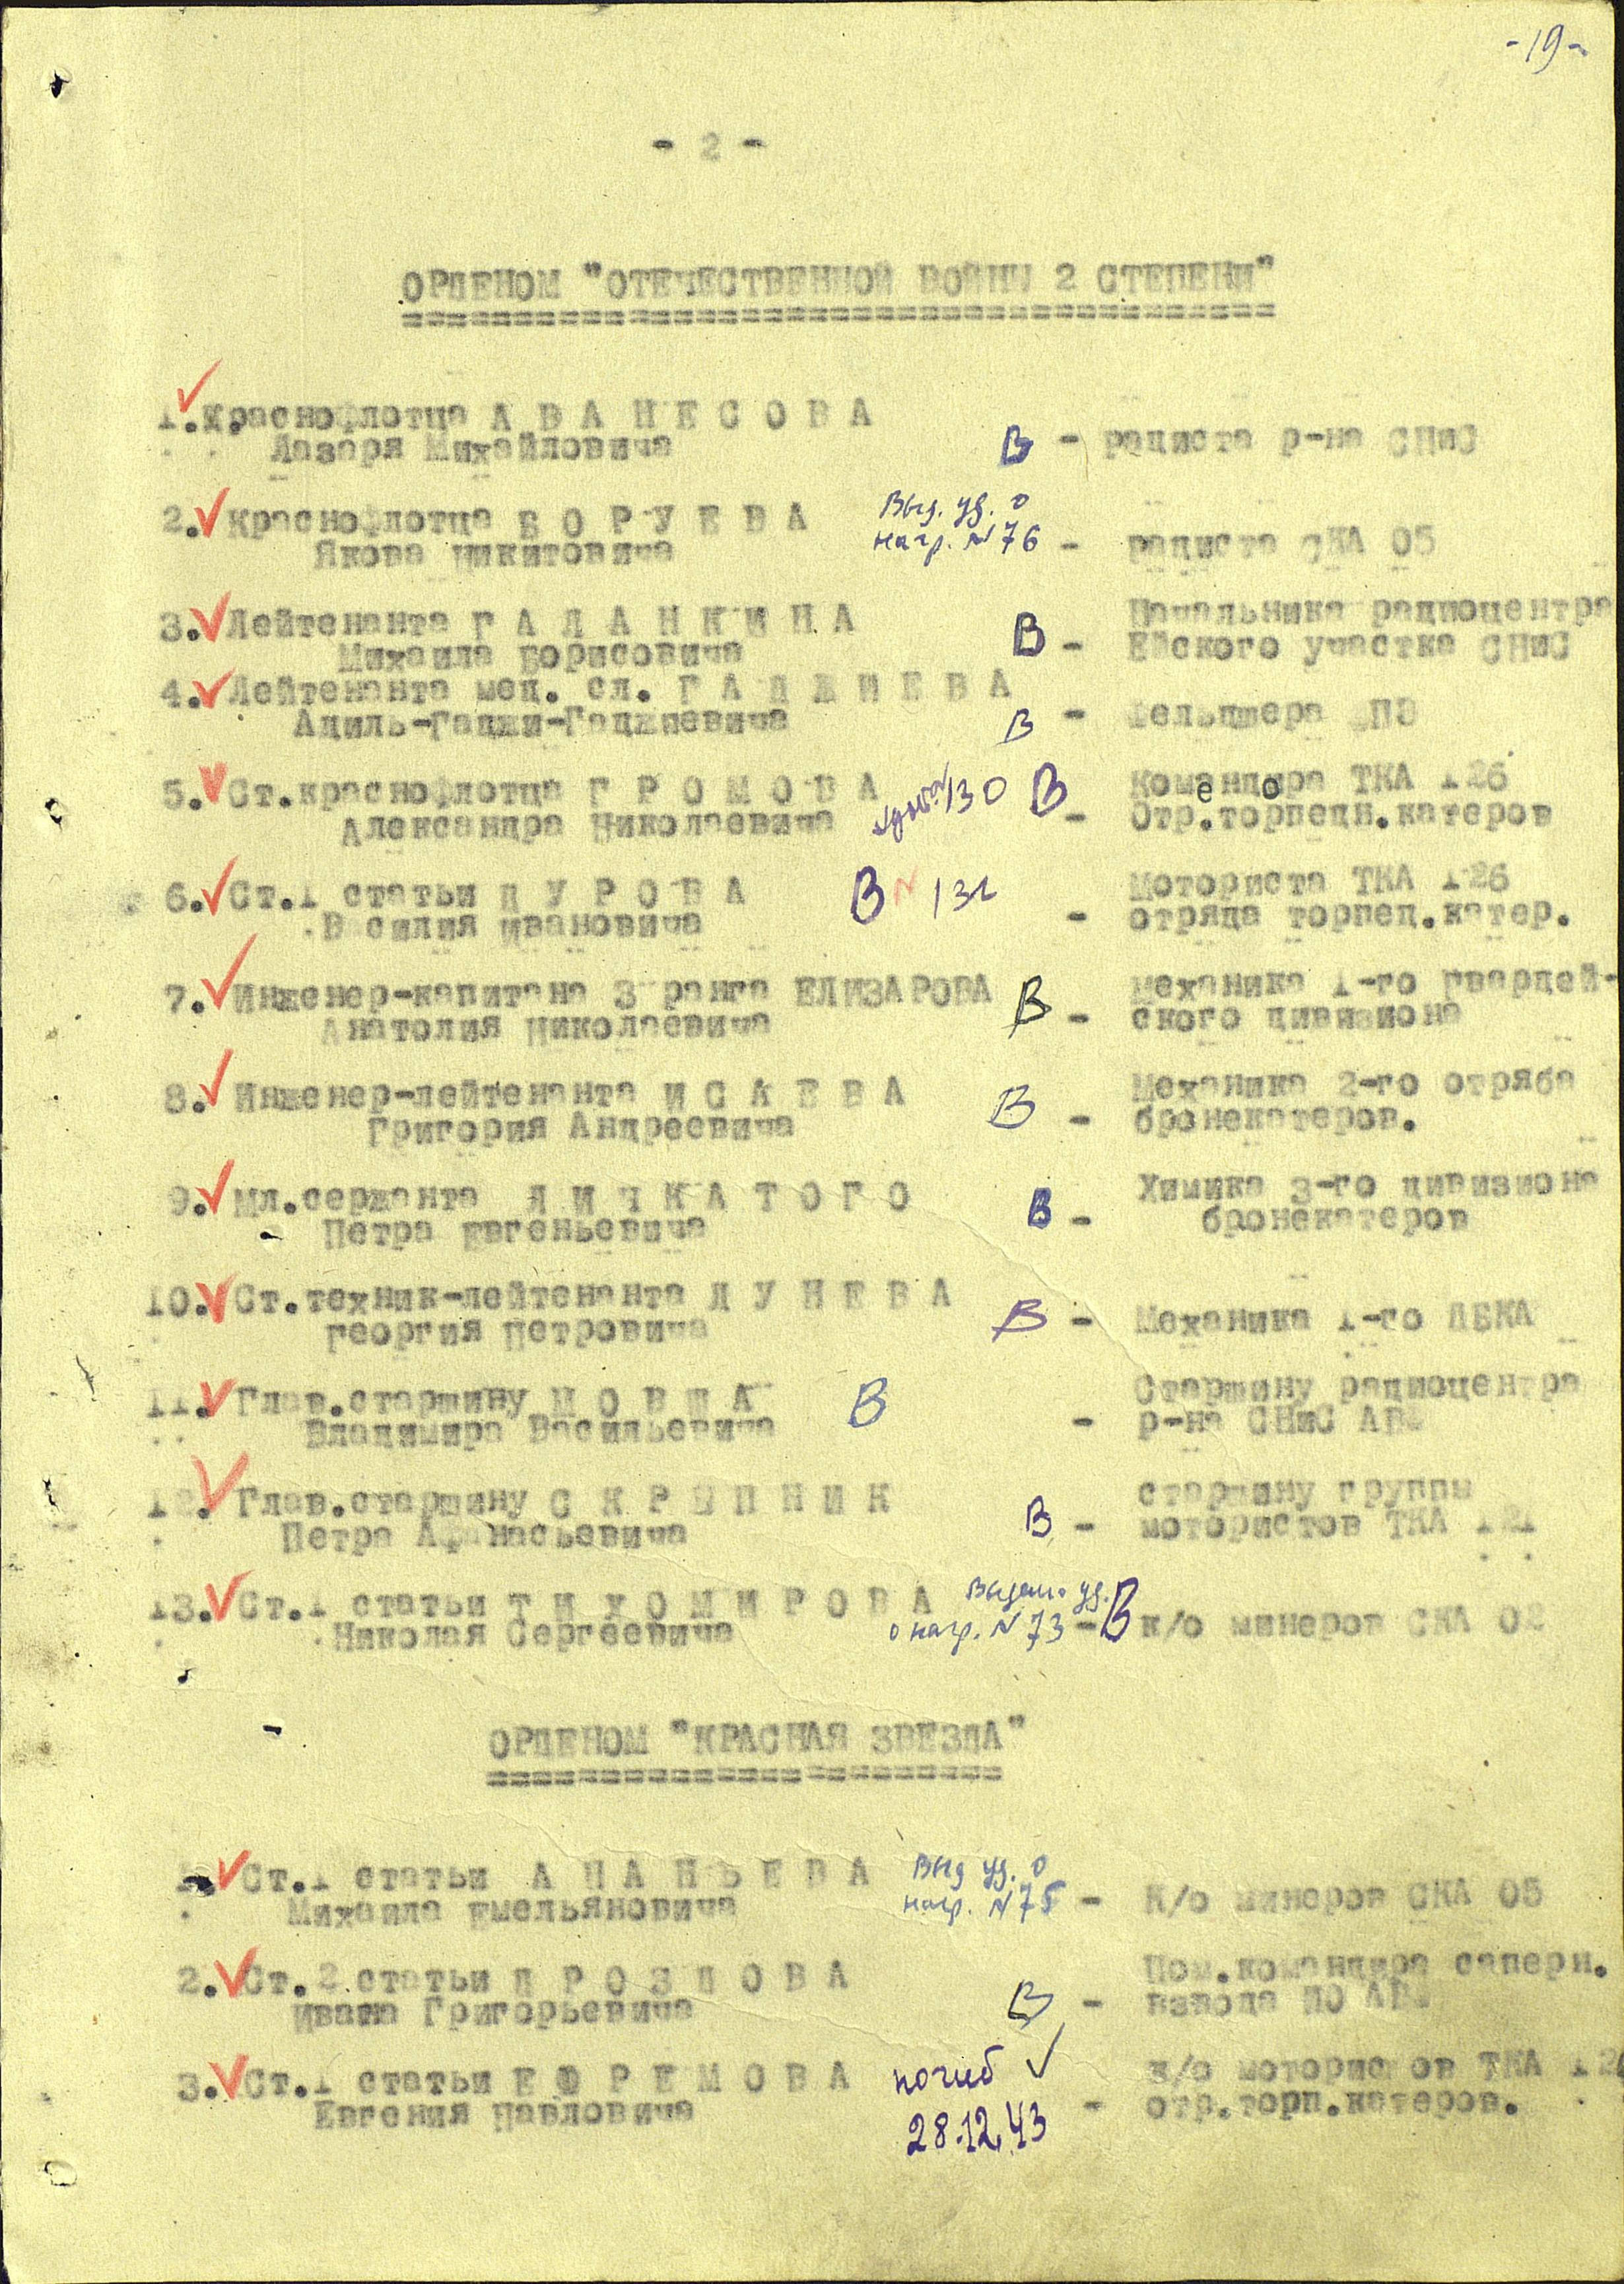 -19-
- 2 -
ОРДЕНОМ "ОТЕЧЕСТВЕННОЙ ВОЙНЫ 2 СТЕПЕНИ"
1. Краснофлотца А В А Н Е С О В А
Лазаря Михайловича В - радиста р-на СНиС
2. Краснофлотца Б О Р У Е В А Выд. уд. о
Якова Никитовича нагр. №76 - радиста СКА 05
3. Лейтенанта Г А Л А Н К И Н А Начальника радиоцентра
Михаила Борисовича В - Ейского участка СНиС
4. Лейтенанта мед. сл. Г А Д Ж И Е В А
Адиль-Гаджи-Гаджиевича В - Фельдшера
5. Ст.краснофлотца Г Р О М О В А 130 В Командира ТКА 126
Александра Николаевича - Отр.торпедн.катеров
6. Ст.1 статьи Д У Р О В А В № 131 Моториста ТКА 126
Василия Ивановича - отряда торпед.катер.
7. Инженер-капитана 3 ранга ЕЛИЗАРОВА В механика 1-го гвардей-
Анатолия Николаевича - ского дивизиона
8. Инженер-лейтенанта И С А Е В А Механика 2-го отряда
Григория Андреевича В - бронекатеров.
9. Мл.сержанта Л И Ч К А Т О Г О Химика 3-го дивизиона
Петра Евгеньевича В - бронекатеров
10. Ст.техник-лейтенанта Л У Н Е В А
Георгия Петровича В - Механика 1-го ДБКА
11. Глав.старшину М О В Ш А В Старшину радиоцентра
Владимира Васильевича - р-на СНиС АВФ
12. Глав.старшину С К Р Ы П Н И К старшину группы
Петра Афанасьевича В - мотористов ТКА 121
13. Ст.1 статьи Т И Х О М И Р О В А Выдан. уд.
Николая Сергеевича о нагр. №73 - В к/о минеров СКА 02
ОРДЕНОМ "КРАСНАЯ ЗВЕЗДА"
1. Ст.1 статьи А Н А Н Ь Е В А Выд уд. о
Михаила Емельяновича нагр. №75 - К/о минеров СКА 05
2. Ст.2 статьи Д Р О З Д О В А Пом.командира саперн.
Ивана Григорьевича В - взвода ПО АВФ
3. Ст.1 статьи Е Ф Р Е М О В А погиб к/о мотористов ТКА 126
Евгения Павловича 28.12.43 - отр.торп.катеров.